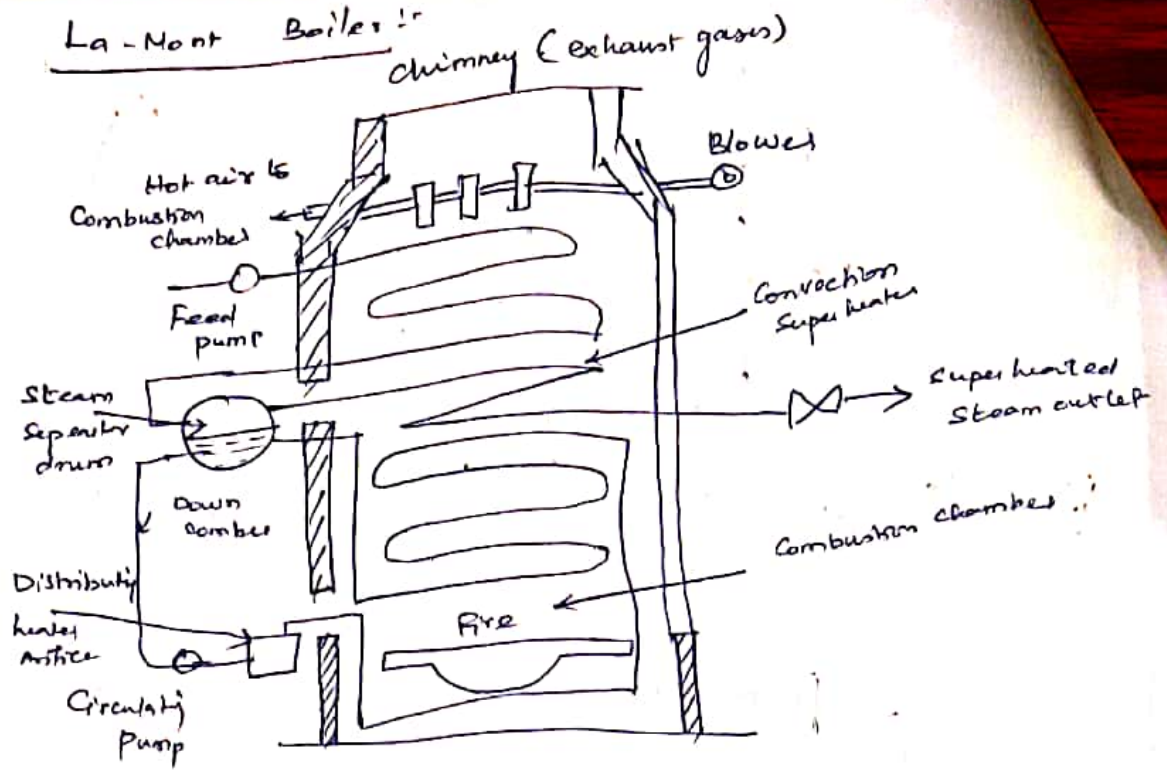 La-Mont Boiler :-
Chimney (exhaust gases)
Blower
Hot air to
Combustion
chamber
Feed
pump
Convection
Super heater
Super heated
Steam outlet
Steam
Seperator
drum
Down
comber
Combustion chamber
Distributing
header
orifice
Fire
Circulating
Pump